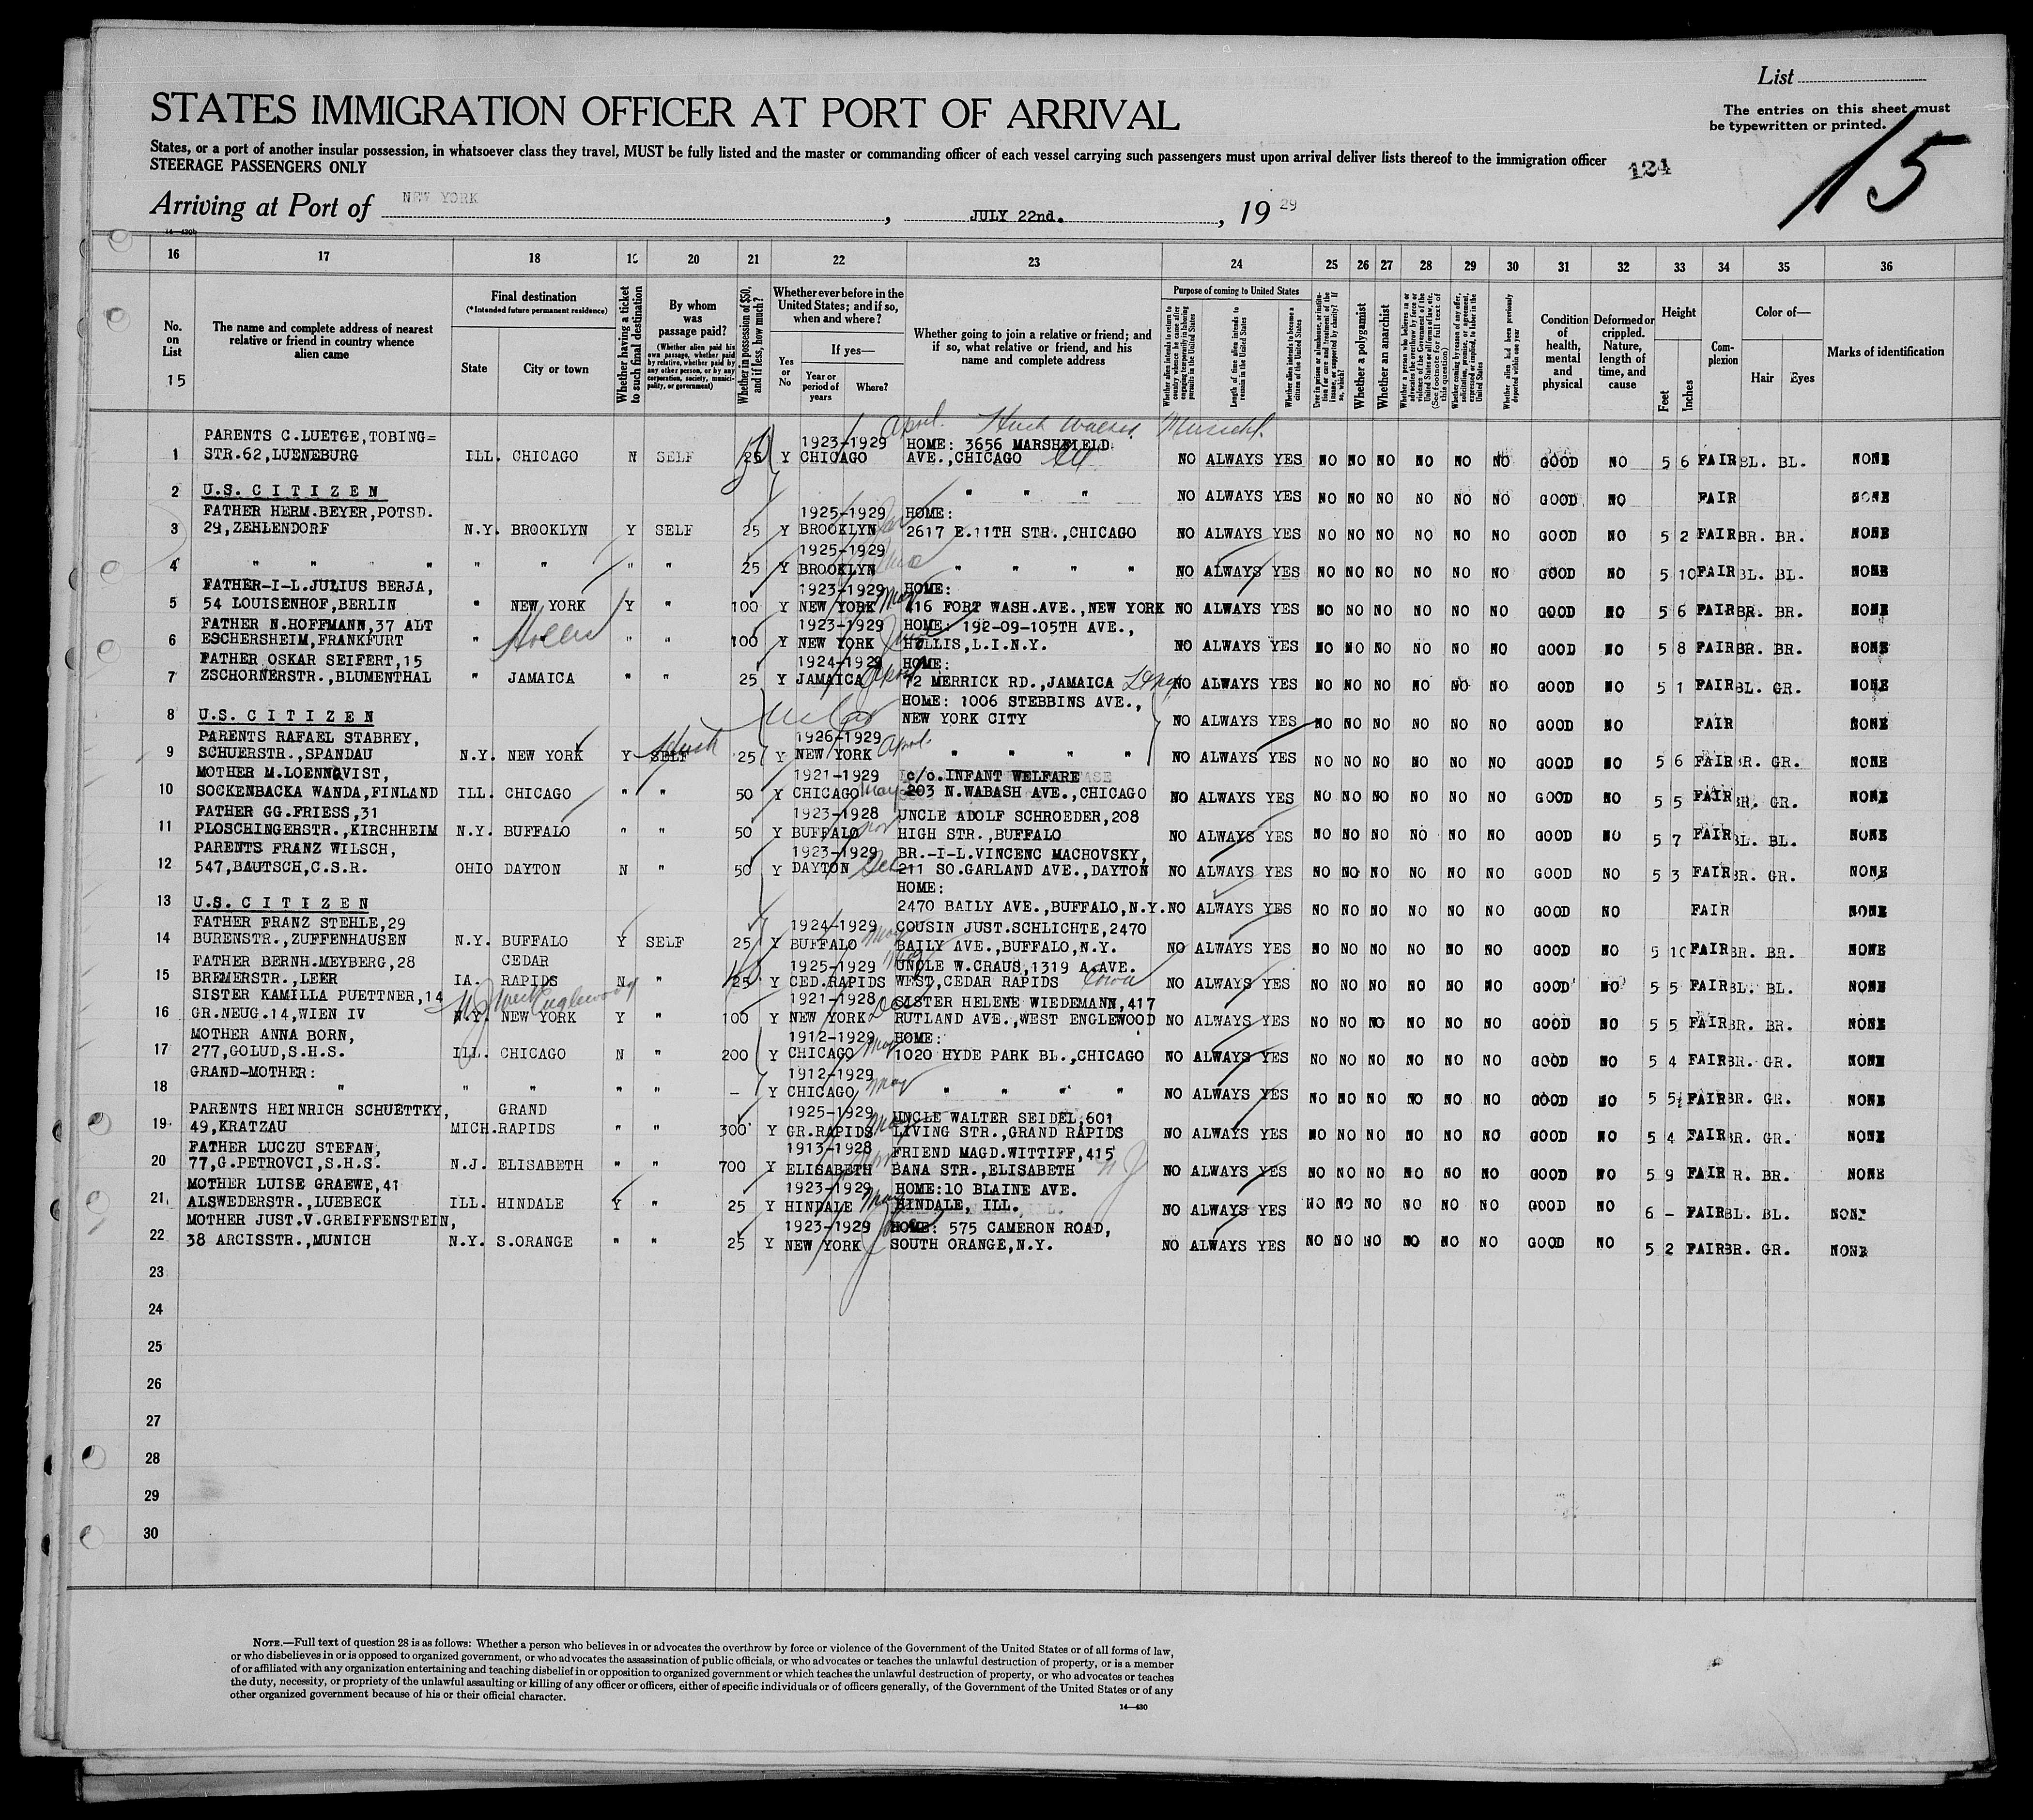 List
STATES IMMIGRATION OFFICER AT PORT OF ARRIVAL
The entries on this sheet must
be typewritten or printed.
15
States, or a port of another insular possession, in whatsoever class they travel, MUST be fully listed and the master or commanding officer of each vessel carrying such passengers must upon arrival deliver lists thereof to the immigration officer
STEERAGE PASSENGERS ONLY
124
Arriving at Port of NEW YORK, JULY 22nd., 19 29
16 17 18 19 20 21 22 23 24 25 26 27 28 29 30 31 32 33 34 35 36
No. on List
15
The name and complete address of nearest relative or friend in country whence alien came
Final destination
(*Intended future permanent residence)
State
City or town
Whether having a ticket to such final destination
By whom was passage paid?
(Whether alien paid his own passage, whether paid by relative, whether paid by any other person, or by any corporation, society, municipality, or government)
Whether in possession of $50, and if less, how much?
Whether ever before in the United States; and if so, when and where?
Yes or No
If yes—
Year or period of years
Where?
Whether going to join a relative or friend; and if so, what relative or friend, and his name and complete address
Purpose of coming to United States
Whether alien intends to return to country whence he came after engaging temporarily in laboring pursuits in the United States
Length of time alien intends to remain in the United States
Whether alien intends to become a citizen of the United States
Ever in prison or almshouse, or institution for care and treatment of the insane, or supported by charity? If so, which?
Whether a polygamist
Whether an anarchist
Whether a person who believes in or advocates the overthrow by force or violence of the Government of the United States or all forms of law, etc. (See footnote for full text of this question)
Whether coming by reason of any offer, solicitation, promise, or agreement, expressed or implied, to labor in the United States
Whether alien had been previously deported within one year
Condition of health, mental and physical
Deformed or crippled. Nature, length of time, and cause
Height
Feet
Inches
Complexion
Color of—
Hair
Eyes
Marks of identification
April.
PARENTS C.LUETGE,TOBING= 1923-1929 HOME: 3656 MARSHFIELD
1 STR.62,LUENEBURG ILL. CHICAGO N SELF 25 Y CHICAGO AVE.,CHICAGO Ill NO ALWAYS YES NO NO NO NO NO NO GOOD NO 5 6 FAIR BL. BL. NONE
2 U.S. C I T I Z E N " " " NO ALWAYS YES NO NO NO NO NO NO GOOD NO FAIR NONE
FATHER HERM.BEYER,POTSD. 1925-1929 HOME:
3 29,ZEHLENDORF N.Y. BROOKLYN Y SELF 25 Y BROOKLYN 2617 E.11TH STR.,CHICAGO NO ALWAYS YES NO NO NO NO NO NO GOOD NO 5 2 FAIR BR. BR. NONE
1925-1929
4 " " " " " " " " 25 Y BROOKLYN " " " " NO ALWAYS YES NO NO NO NO NO NO GOOD NO 5 10 FAIR BL. BL. NONE
FATHER-I-L.JULIUS BERJA, 1923-1929 HOME:
5 54 LOUISENHOF,BERLIN " NEW YORK Y " 100 Y NEW YORK May 416 FORT WASH.AVE.,NEW YORK NO ALWAYS YES NO NO NO NO NO NO GOOD NO 5 6 FAIR BR. BR. NONE
FATHER N.HOFFMANN,37 ALT 1923-1929 HOME: 192-09-105TH AVE.,
6 ESCHERSHEIM,FRANKFURT " Hollis " " 100 Y NEW YORK June HOLLIS,L.I.N.Y. NO ALWAYS YES NO NO NO NO NO NO GOOD NO 5 8 FAIR BR. BR. NONE
FATHER OSKAR SEIFERT,15 1924-1929 HOME:
7 ZSCHORNERSTR.,BLUMENTHAL " JAMAICA " " 25 Y JAMAICA 72 MERRICK RD.,JAMAICA NO ALWAYS YES NO NO NO NO NO NO GOOD NO 5 1 FAIR BL. GR. NONE
HOME: 1006 STEBBINS AVE.,
8 U.S. C I T I Z E N NEW YORK CITY NO ALWAYS YES NO NO NO NO NO NO GOOD NO FAIR NONE
PARENTS RAFAEL STABREY, 1926-1929
9 SCHUERSTR.,SPANDAU N.Y. NEW YORK Y SELF 25 Y NEW YORK April " " " " NO ALWAYS YES NO NO NO NO NO NO GOOD NO 5 6 FAIR BR. GR. NONE
MOTHER M.LOENNQVIST, 1921-1929 c/o.INFANT WELFARE
10 SOCKENBACKA WANDA,FINLAND ILL. CHICAGO " " 50 Y CHICAGO May 203 N.WABASH AVE.,CHICAGO NO ALWAYS YES NO NO NO NO NO NO GOOD NO 5 5 FAIR BR. GR. NONE
FATHER GG.FRIESS,31 1923-1928 UNCLE ADOLF SCHROEDER,208
11 PLOSCHINGERSTR.,KIRCHHEIM N.Y. BUFFALO " " 50 Y BUFFALO Nov HIGH STR.,BUFFALO NO ALWAYS YES NO NO NO NO NO NO GOOD NO 5 7 FAIR BL. BL. NONE
PARENTS FRANZ WILSCH, 1923-1929 BR.-I-L.VINCENC MACHOVSKY,
12 547,BAUTSCH,C.S.R. OHIO DAYTON N " 50 Y DAYTON 211 SO.GARLAND AVE.,DAYTON NO ALWAYS YES NO NO NO NO NO NO GOOD NO 5 3 FAIR BR. GR. NONE
HOME:
13 U.S. C I T I Z E N 2470 BAILY AVE.,BUFFALO,N.Y. NO ALWAYS YES NO NO NO NO NO NO GOOD NO FAIR NONE
FATHER FRANZ STEHLE,29 1924-1929 COUSIN JUST.SCHLICHTE,2470
14 BURENSTR.,ZUFFENHAUSEN N.Y. BUFFALO Y SELF 25 Y BUFFALO May BAILY AVE.,BUFFALO,N.Y. NO ALWAYS YES NO NO NO NO NO NO GOOD NO 5 10 FAIR BR. BR. NONE
FATHER BERNH.MEYBERG,28 CEDAR 1925-1929 May UNCLE W.CRAUS,1319 A.AVE.
15 BREMERSTR.,LEER IA. RAPIDS N " 25 Y CED.RAPIDS WEST,CEDAR RAPIDS Iowa NO ALWAYS YES NO NO NO NO NO NO GOOD NO 5 5 FAIR BL. BL. NONE
SISTER KAMILLA PUETTNER,14 N.J. West Englewood 1921-1928 SISTER HELENE WIEDEMANN,417
16 GR.NEUG.14,WIEN IV N.Y. NEW YORK Y " 100 Y NEW YORK Dec RUTLAND AVE.,WEST ENGLEWOOD NO ALWAYS YES NO NO NO NO NO NO GOOD NO 5 5 FAIR BR. BR. NONE
MOTHER ANNA BORN, 1912-1929 HOME:
17 277,GOLUD,S.H.S. ILL. CHICAGO N " 200 Y CHICAGO May 1020 HYDE PARK BL.,CHICAGO NO ALWAYS YES NO NO NO NO NO NO GOOD NO 5 4 FAIR BR. GR. NONE
GRAND-MOTHER: 1912-1929
18 " " " " " - Y CHICAGO May " " " " NO ALWAYS YES NO NO NO NO NO NO GOOD NO 5 5½ FAIR BR. GR. NONE
PARENTS HEINRICH SCHUETTKY, GRAND 1925-1929 UNCLE WALTER SEIDEL,601
19 49,KRATZAU MICH. RAPIDS " " 300 Y GR.RAPIDS May LIVING STR.,GRAND RAPIDS NO ALWAYS YES NO NO NO NO NO NO GOOD NO 5 4 FAIR BR. GR. NONE
FATHER LUCZU STEFAN, 1913-1928 FRIEND MAGD.WITTIFF,415
20 77,G.PETROVCI,S.H.S. N.J. ELISABETH " " 700 Y ELISABETH BANA STR.,ELISABETH N J NO ALWAYS YES NO NO NO NO NO NO GOOD NO 5 9 FAIR R. BR. NONE
MOTHER LUISE GRAEWE,41 1923-1929 HOME:10 BLAINE AVE.
21 ALSWEDERSTR.,LUEBECK ILL. HINDALE Y " 25 Y HINDALE May HINDALE, ILL. NO ALWAYS YES NO NO NO NO NO NO GOOD NO 6 - FAIR BL. BL. NONE
MOTHER JUST.V.GREIFFENSTEIN, 1923-1929 HOME: 575 CAMERON ROAD,
22 38 ARCISSTR.,MUNICH N.Y. S.ORANGE " " 25 Y NEW YORK SOUTH ORANGE,N.Y. NO ALWAYS YES NO NO NO NO NO NO GOOD NO 5 2 FAIR BR. GR. NONE
23
24
25
26
27
28
29
30
NOTE.—Full text of question 28 is as follows: Whether a person who believes in or advocates the overthrow by force or violence of the Government of the United States or of all forms of law,
or who disbelieves in or is opposed to organized government, or who advocates the assassination of public officials, or who advocates or teaches the unlawful destruction of property, or is a member
of or affiliated with any organization entertaining and teaching disbelief in or opposition to organized government or which teaches the unlawful destruction of property, or who advocates or teaches
the duty, necessity, or propriety of the unlawful assaulting or killing of any officer or officers, either of specific individuals or of officers generally, of the Government of the United States or of any
other organized government because of his or their official character.
14—430